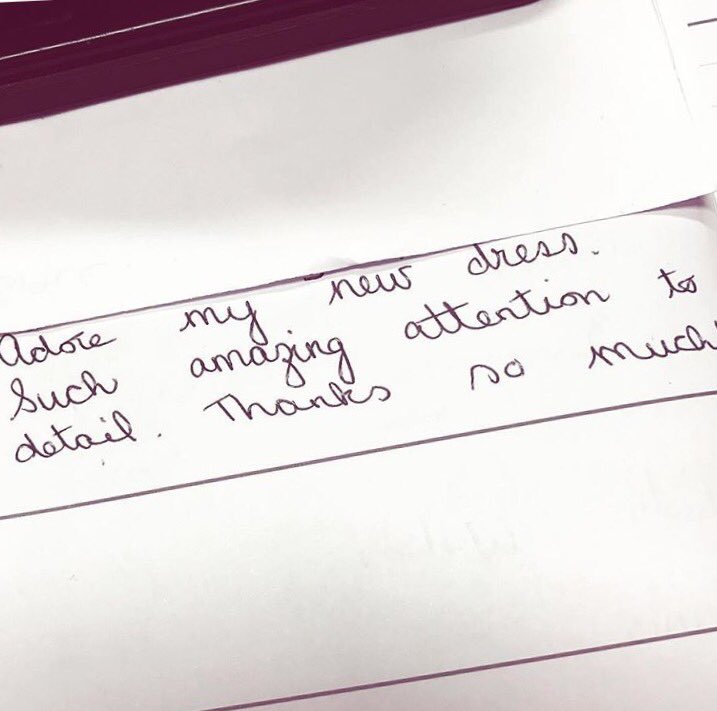 Adore my new dress.
Such amazing attention to
detail. Thanks so much